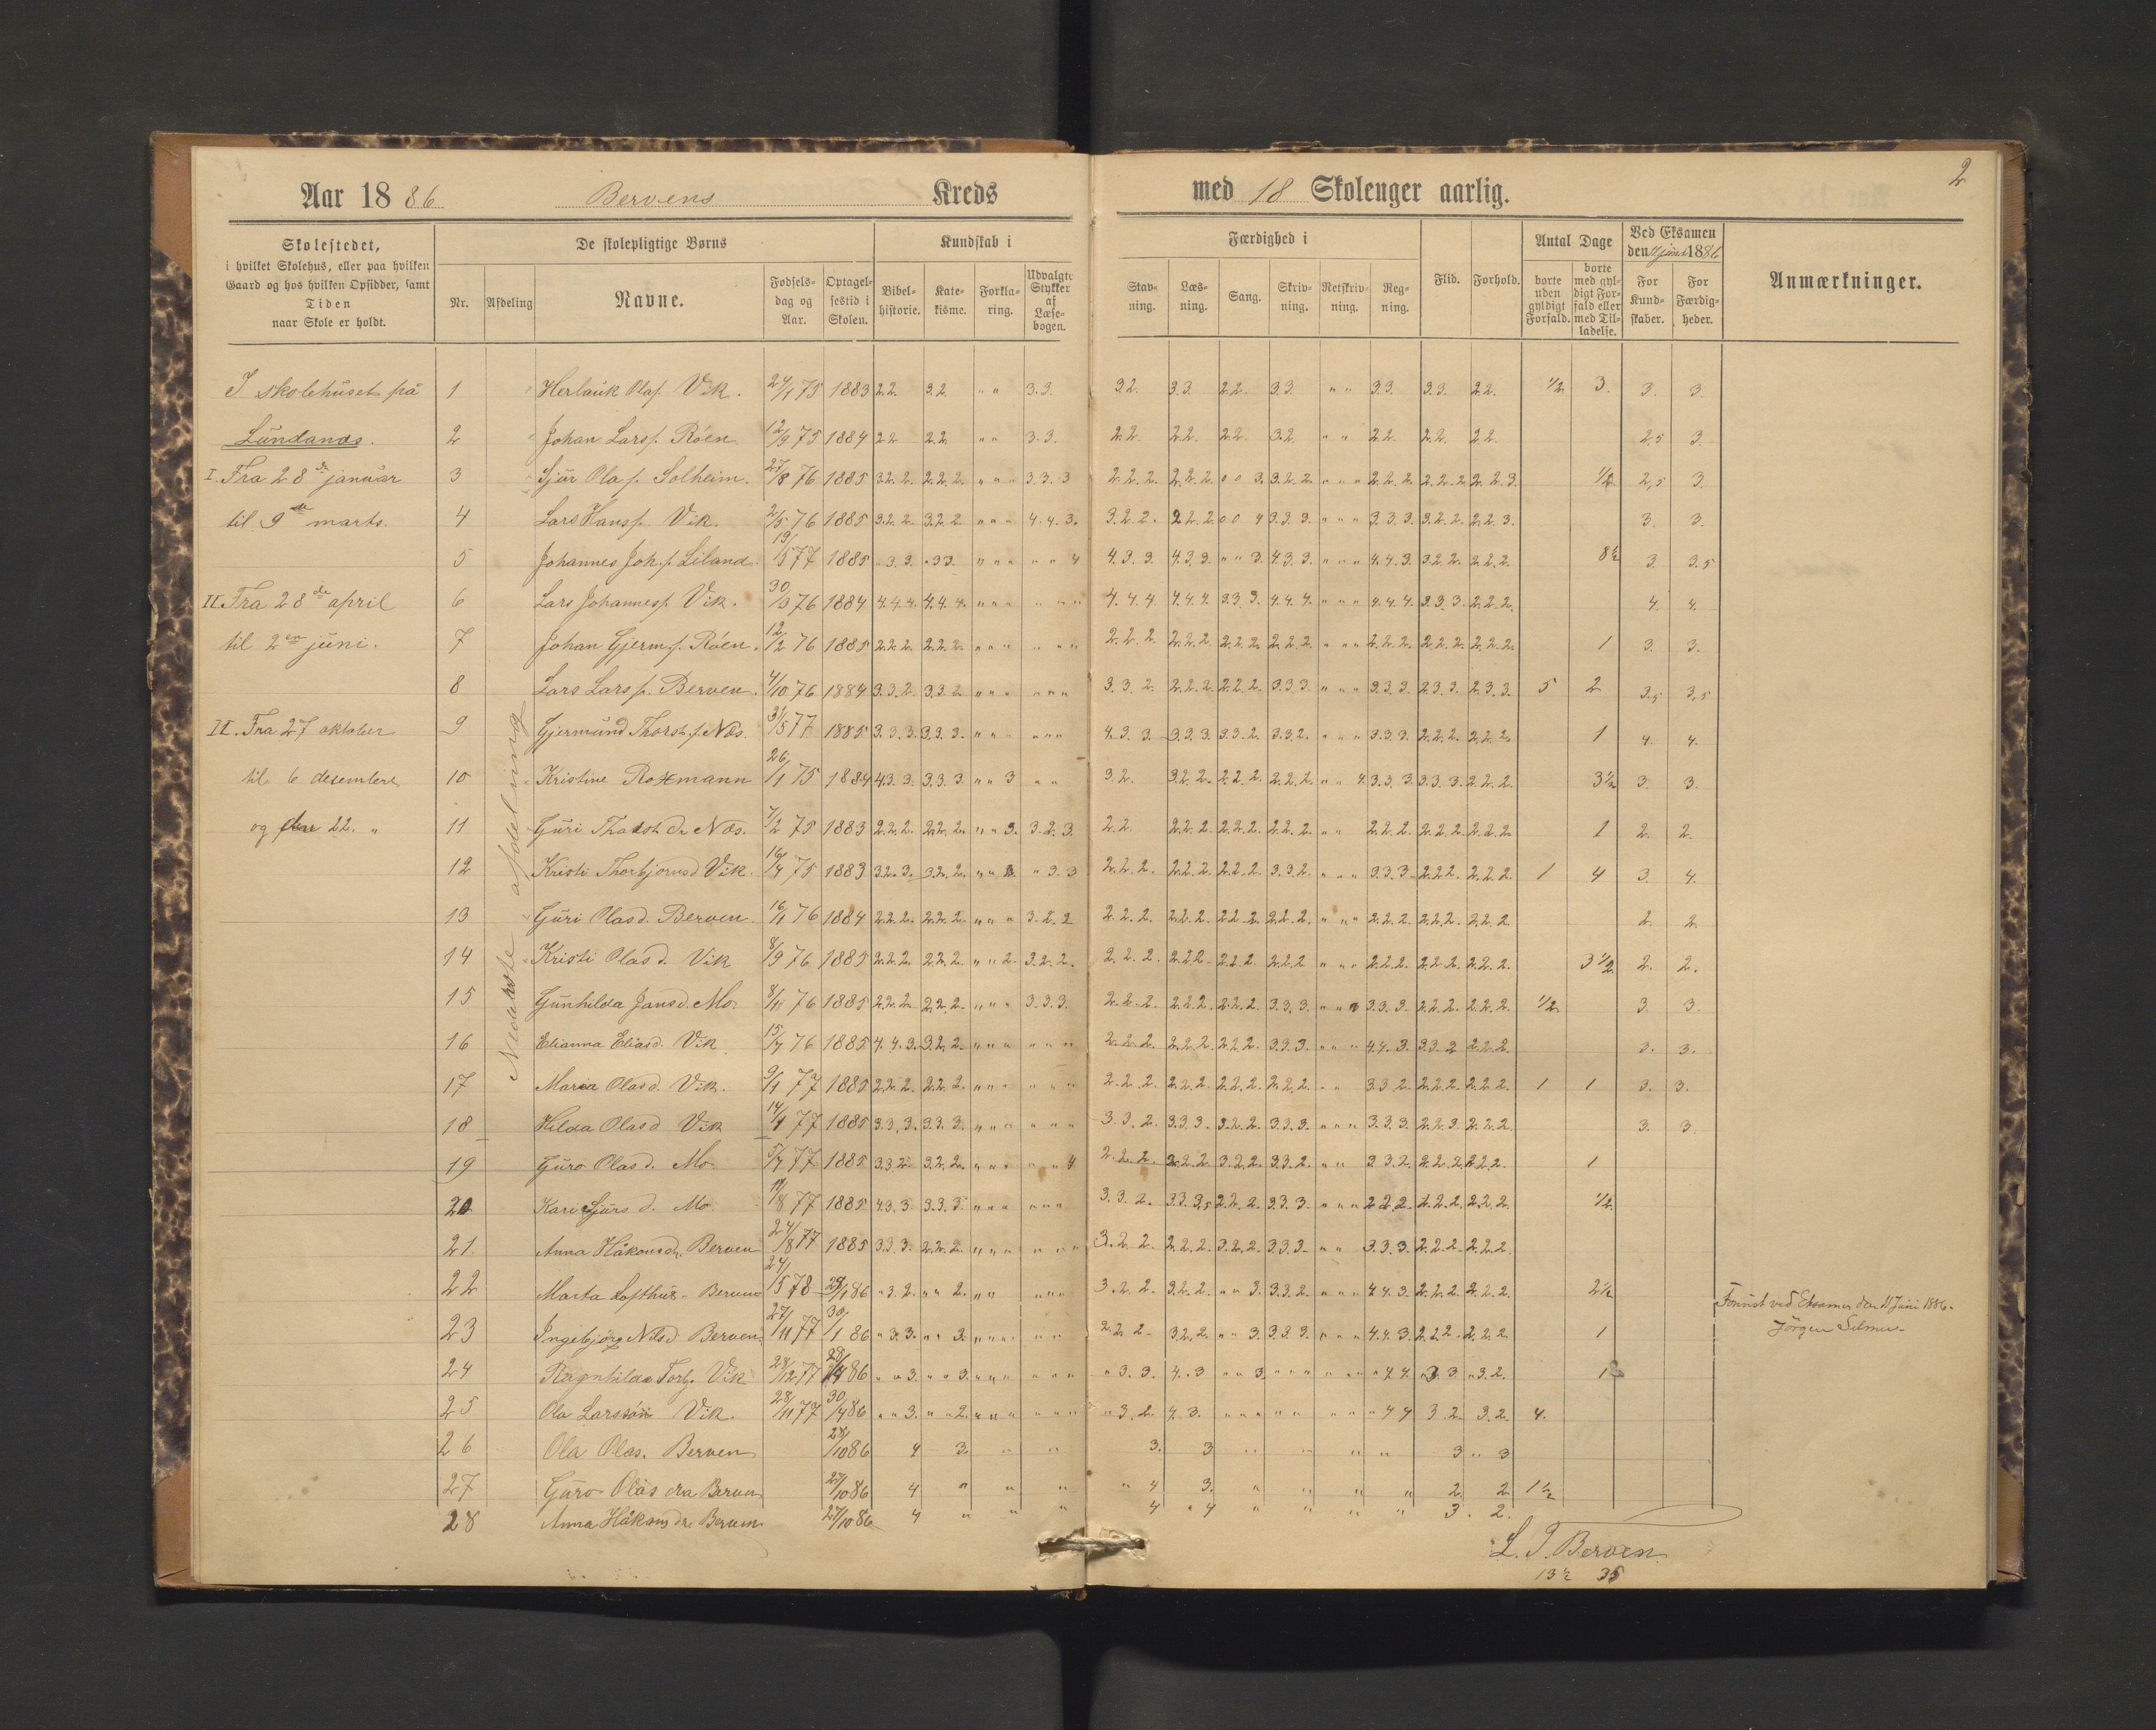 2
Aar 1886 Bervens Kreds med 18 Skolenger aarlig.
Skolestedet, i hvilket Skolehus, eller paa hvilken Gaard og hos hvilken Opsidder, samt Tiden naar Skole er holdt.
De skolepligtige Børns
Nr. Afdeling Navne. Fødselsdag og Aar. Optagelsestid i Skolen.
Kundskab i
Bibelhistorie. Katekisme. Forklaring. Udvalgte Stykker af Læsebogen.
Færdighed i
Stavning. Læsning. Sang. Skrivning. Retskrivning. Regning.
Flid. Forhold.
Antal Dage
borte uden gyldigt Forfald. borte med gyldigt Forfald eller med Tilladelse.
Ved Eksamen den 11 juni 1886
For Kundskaber. For Færdigheder.
Anmærkninger.
I skolehuset på
Lundanæs.
I. Fra 28de januar
til 9de marts.
II. Fra 28de april
til 2en juni.
II. Fra 27 oktober
til 6 desember
og den 22. "
Nederste afdelning
1 Herlauk Olas. Vik. 24/1 75 1883 2.2. 3.2. " " 3.3. 3.2. 3.3. 2.2. 3.3. " " 3.3. 3.3. 2.2. 1/2 3. 3. 3.
2 Johan Larss. Røen 12/9 75 1884 2.2 2.2 " " 3.3. 2.2. 2.2. 2.2. 3.2. " " 2.2. 2.2. 2.2. 2,5 3.
3 Sjur Olas. Solheim. 27/8 76 1885 3.2.2. 2.2.2. " " " 3.3.3 2.2.2. 2.2.2. 0 0 3. 3.2.2. " " " 2.2.2. 2.2.2. 2.2.3. 1/2 2,5 3.
4 Lars Hanss. Vik. 2/5 76 1885 3.2.2. 3.2.2. " " " 4.4.3. 3.2.2. 2.2.2. 0 0 4 3.3.3. " " " 3.3.3. 3.2.2. 2.2.3. 3. 3.
5 Johannes Joh.s. Liland 19/5 77 1885 " 3.3. " 3.3. " " " " " 4 4.3.3. 4.3.3. " " 3 4.3.3. " " " 4.4.3. 3.2.2. 2.2.2. 8 1/2 3. 3.5
6 Lars Johanness. Vik. 30/3 76 1884 4.4.4. 4.4.4. " " " " " " 4.4.4. 4.4.4. 3.3.3. 4.4.4. " " " 4.4.4. 3.3.3. 2.2.2. 4. 4.
7 Johan Gjerm.s. Røen. 12/2 76 1885 2.2.2. 2.2.2. " " " " " " 2.2.2. 2.2.2. 2.2.2. 2.2.2. " " " 2.2.2. 2.2.2. 2.2.2. 1 3. 3.
8 Lars Larss. Berven. 4/10 76 1884 3.3.2. 3.3.2 " " " " " " 3.3.2. 2.2.2. 2.2.2. 3.3.3. " " " 3.3.3. 2.3.3. 2.3.3. 5 2 3,5 3,5
9 Gjermund Thorst.s. Næs. 31/5 77 1885 3.3.3. 3.3.3. " " " " " " 4.3.3. 3.3.3. 3.3.2. 3.3.2. " " " 3.3.3. 2.2.2. 2.2.2. 1 4. 4.
10 Kristine Rotzmann 26/1 75 1884 4.3.3. 3.3.3. " " 3 " " 3.2. 3.2.2. 2.2.2. 2.2.2. " " 4. 3.3.3. 3.3.3. 2.2.2. 3 1/2 3. 3.
11 Guri Thorst.d. Næs. 7/2 75 1883 2.2.2. 2.2.2. " " 3. 3.2.3. 2.2. 2.2.2. 2.2.2. 2.2.2. " " 2.2.2. 2.2.2. 2.2.2. 1 2. 2.
12 Kristi Thorbjørnsd. Vik. 16/4 75 1883 3.2.3. 3.2.2. " " " 3.3 2.2.2. 2.2.2. 2.2.2. 3.3.2. " " " 3.3.3. 2.2.2. 2.2.2. 1 4 3. 4.
13 Guri Olasd. Berven. 16/11 76 1884 2.2.2. 2.2.2. " " " 3.2.2 2.2.2. 2.2.2. 2.2.2. 2.2.2. " " " 2.2.2. 2.2.2. 2.2.2 2. 2.
14 Kristi Olasd. Vik 8/9 76 1885 2.2.2. 2.2.2. " " 2. 3.2.2. 2.2.2. 2.2.2. 2.2.2. 2.2.2 " " " 2.2.2. 2.2.2. 2.2.2. 3 1/2 2. 2.
15 Gunhilda Jansd. Mo. 8/11 76 1885 2.2.2. 2.2.2. " " " 3.3.3. 2.2.2. 2.2.2. 2.2.2. 3.3.3. " " " 3.3.3. 2.2.2. 2.2.2. 1/2 3. 3.
16 Elianna Eliasd. Vik. 15/7 76 1885 4.4.3. 3.2.2. " " " " " " 2.2.2. 2.2.2. 2.2.2. 3.3.3. " " " 4.4.3. 3.3.2 2.2.2. 3. 3.
17 Maria Olasd. Vik. 9/1 77 1885 2.2.2. 2.2.2. " " " " " " 2.2.2. 2.2.2. 2.2.2. 2.2.2. " " 3.3.2. 2.2.2. 2.2.2. 1 1 3. 3.
18 Hilda Olasd Vik 14/4 77 1885 3.3.3. 3.3.3. " " " " " " 3.3.2. 3.3.3. 3.2.2. 3.3.3. " " " 3.3.3. 2.2.3. 2.2.2. 3. 3.
19 Guro Olasd. Mo. 5/7 77 1885 3.3.2. 3.2.2. " " " " " 4 2.2.2. 2.2.2 3.2.2. 3.3.2. " " 3.3.2. 2.2.2. 2.2.2. 1
20 Kari Sjurs d. Mo. 19/8 77 1885 4.3.3. 3.3.3. " " " " " " 3.3.2. 3.3.3,5 2.2.2. 3.3.3 " " " 2.2.2. 2.2.2. 2.2.2. 1/2
21 Anna Håkonsdr. Berven 24/8 77 1885 3.3.3. 2.2.2. " " " " " " 3.2.2. 2.2.2. 3.2.2. 3.3.3. " " 3.3.3. 2.2.2. 2.2.2.
22 Marta Lofthus - Berven 24/5 78 28/1 86 " 3.2. " " 2. " " " " " 3.2.2. 3.2.2. " " 3. 3.3.2. " " " 4.4.3. 2.2.2. 2.2.2. 2 1/2
23 Ingebjørg Nilsd. Berven. 27/11 77 30/1 86 " 3.3. " " 3. " " " " " " 2.2.2. 3.2.2. " " 3. 3.3.3. " " " 4.4.3. 2.2.2. 2.2.2. 1
24 Ragnhilda Torbj. Vik 28/12 77 28/4 86 " " 3. " " 3. " " " " " " " 3.3. 4. " 3 " " 3 " " " " " " " 4.4. " 3.3 " 3.2. 1
25 Ola Larssøn Vik. 28/11 77 30/4 86 " " 3. " " 2. " " " " " " " 3.2. 4.3. " " " " " " " " 4 4 3.2. 3.2. 4.
26 Ola Olas. Berven 28/10 86 4 3. " " 3. 3 " " " " 3 " 3
27 Guro Olas dra Berven 27/10 86 4 " " " " 4 3. " " " " 2. 2 1 1/2
28 Anna Håkons dr. Berven 27/10 86 4 " " " 4 " 4 " " " " 3. 2.
Jørgen
L. T. Berven.
13 1/2 35